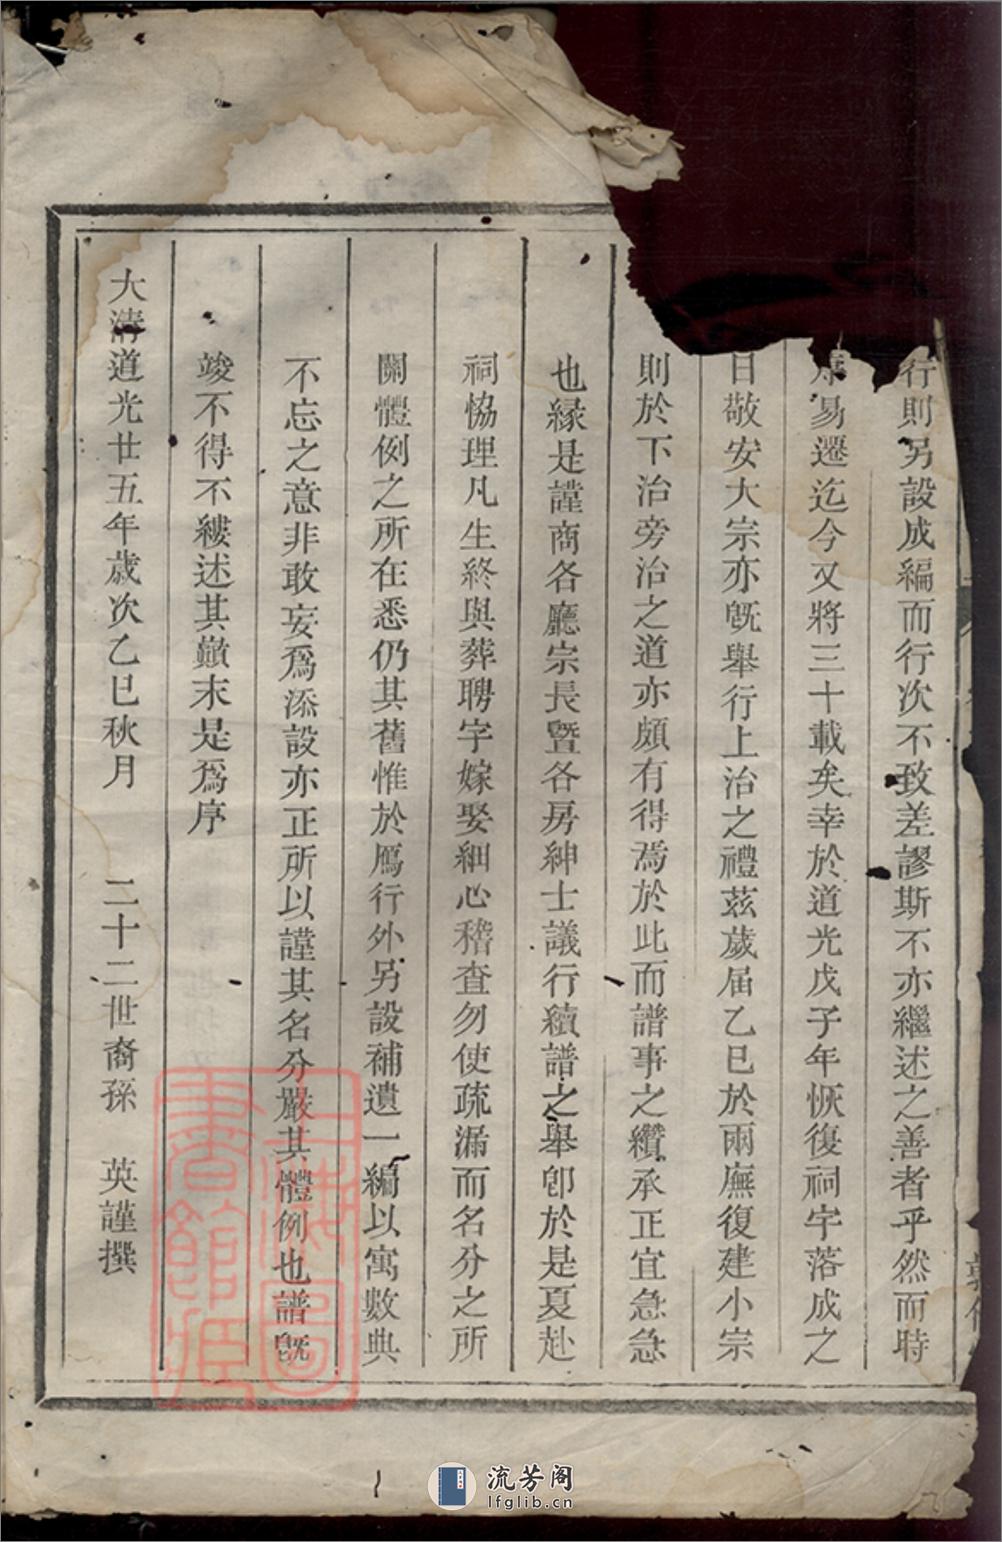 行則另設成編而行次不致差謬斯不亦繼述之善者乎然而時
易遷迄今又將三十載矣幸於道光戊子年恢復祠宇落成之
日敬安大宗亦旣舉行上治之禮兹歲届乙巳於兩廡復建小宗
則於下治旁治之道亦頗有得焉於此而譜事之纘承正宜急急
也緣是謹商各廳宗長暨各房紳士議行續譜之舉卽於是夏赴
祠恊理凡生終與葬聘字嫁娶細心稽查勿使疏漏而名分之所
關體例之所在悉仍其舊惟於鴈行外另設補遺一編以寓數典
不忘之意非敢妄爲添設亦正所以謹其名分嚴其體例也譜旣
竣不得不縷述其巔末是爲序
大清道光廿五年歲次乙巳秋月 二十二世裔孫 英謹撰
上海圖書館藏
流芳阁
lfglib.cn